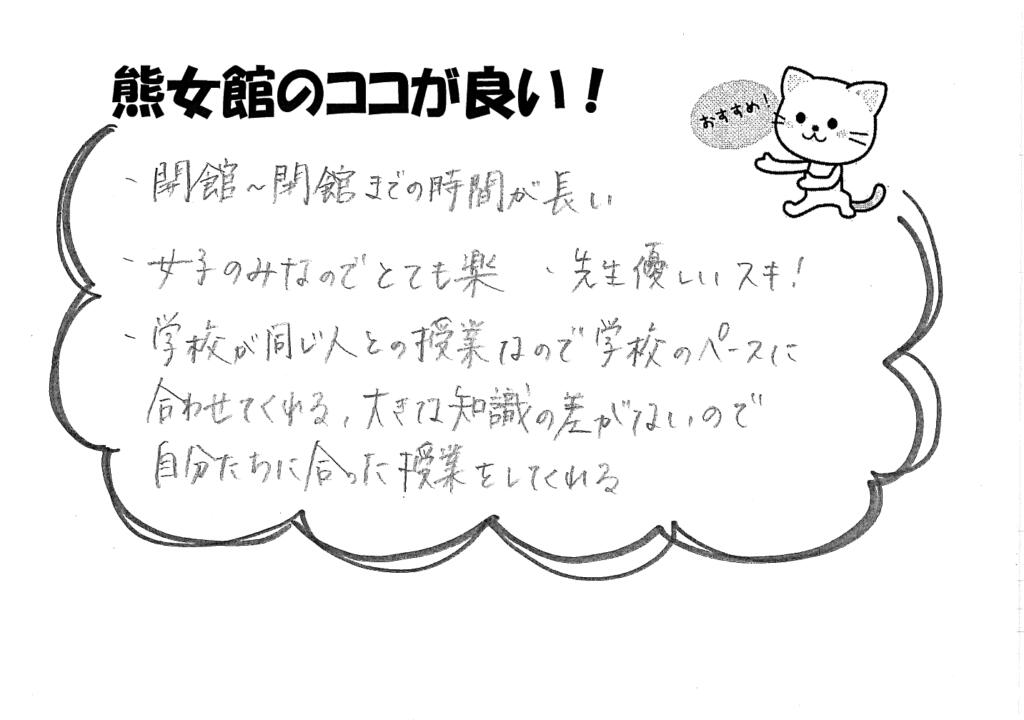 熊女館のココが良い！
おすすめ！
、開館～閉館までの時間が長い
、女子のみなのでとても楽 、先生優しいスキ!
、学校が同じ人との授業なので学校のペースに
合わせてくれる、大きな知識の差がないので
自分たちに合った授業をしてくれる